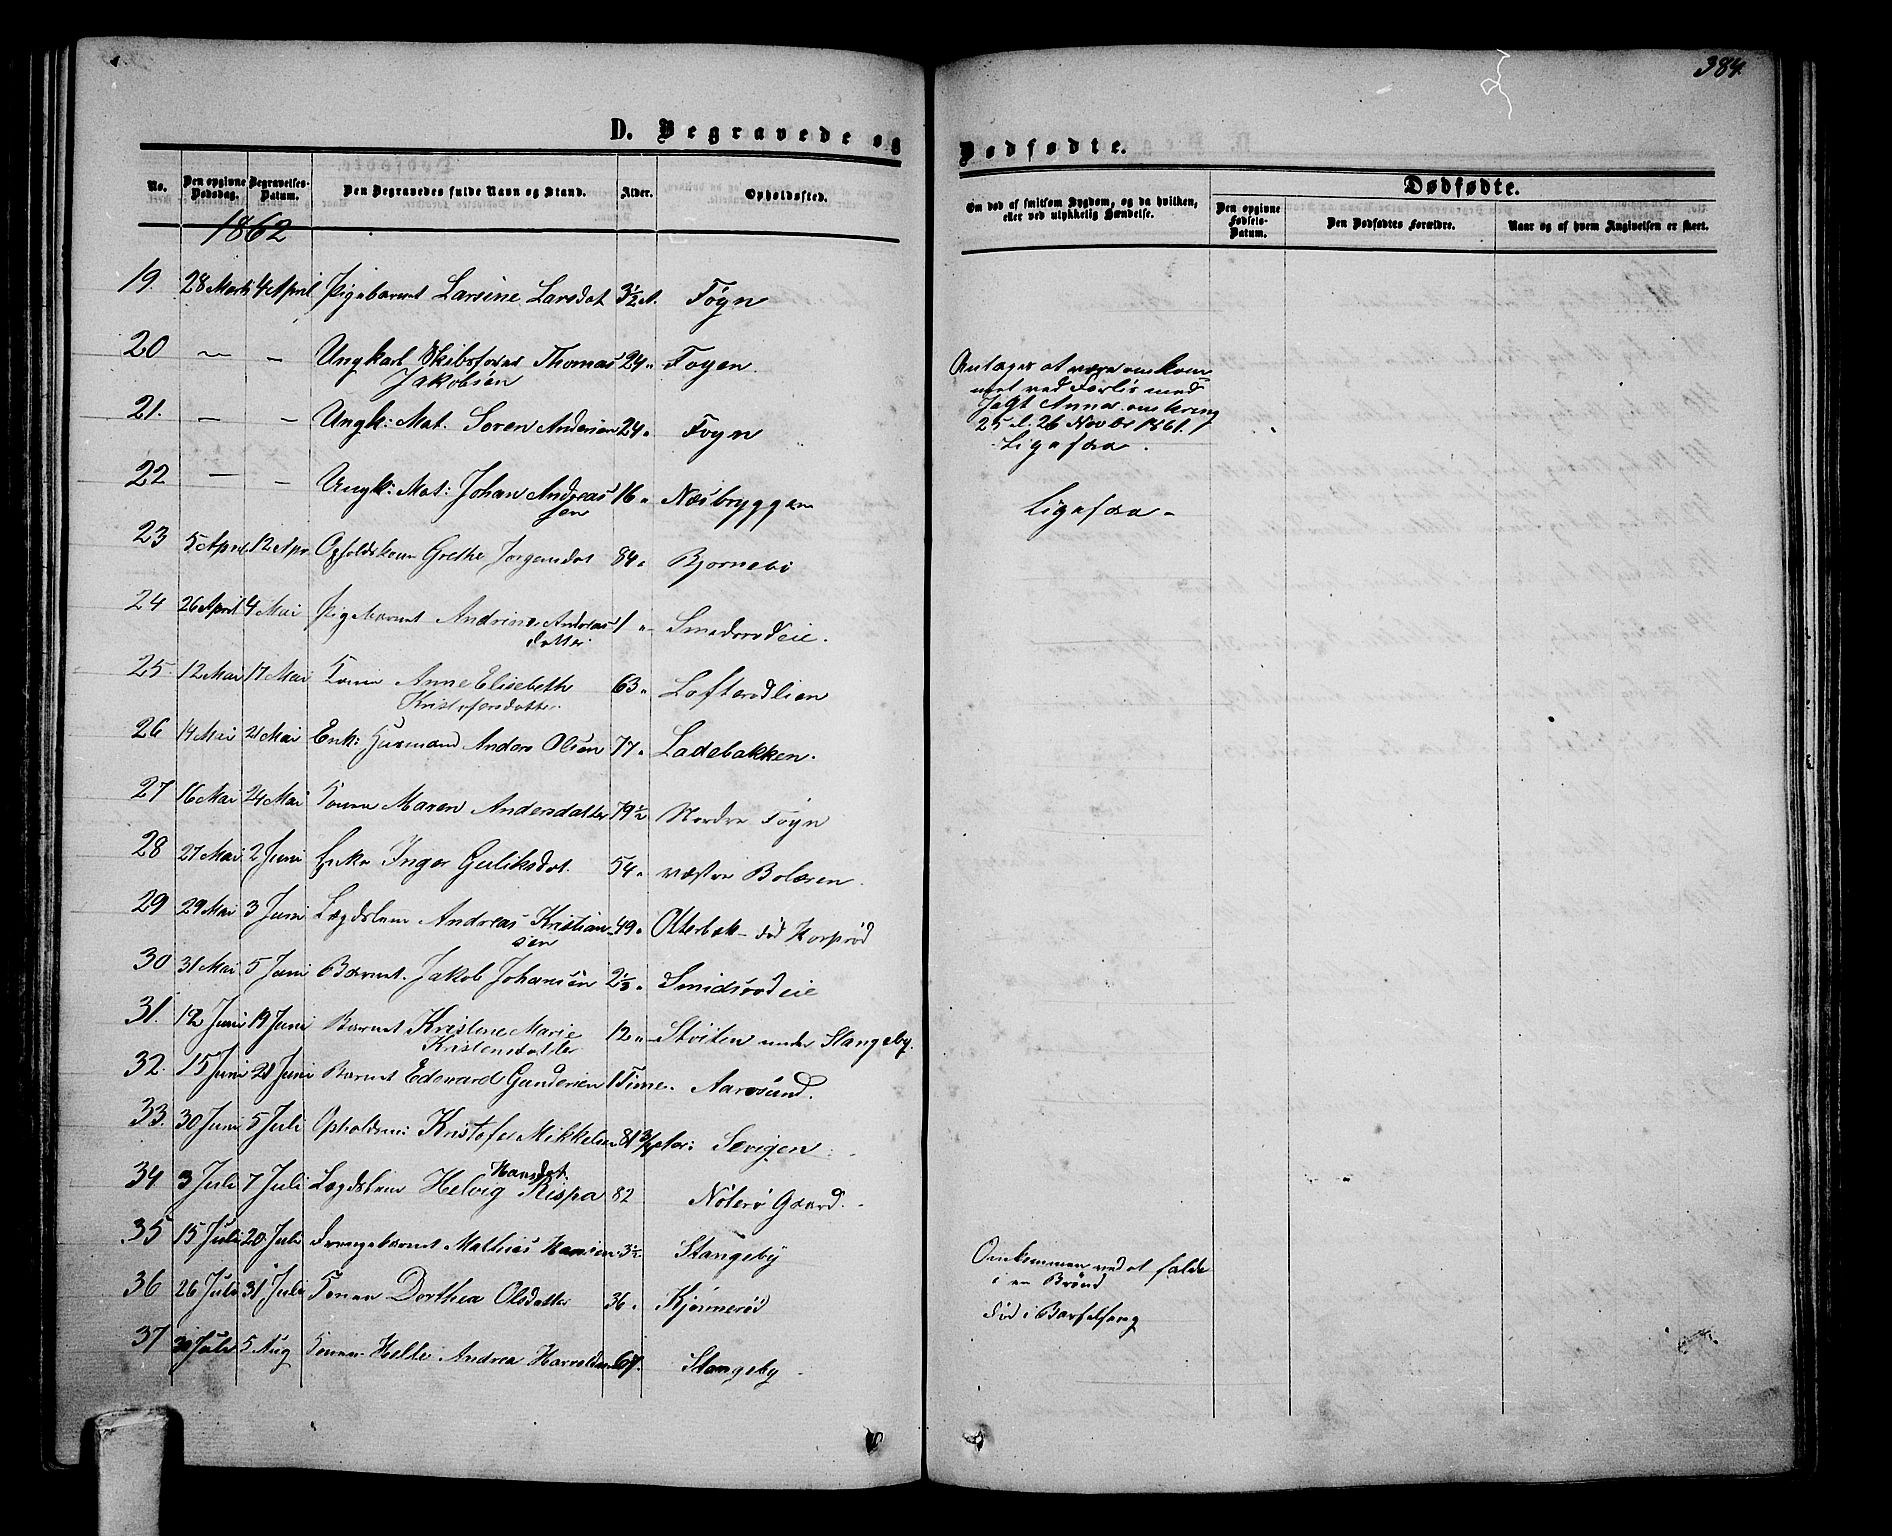 384.
D. Begravede og Dødfødte.
No. Den opgivne Dødsdag. Begravelses-Datum. Den Begravedes fulde Navn og Stand. Alder. Opholdssted. Om død af smitsom Sygdom, og da hvilken, eller ved ulykkelig Hændelse. Dødfødte.
Den opgivne Fødsels-Datum. Den Dødfødtes Forældre. Naar og af hvem Angivelsen er skeet.
1862
19. 28 Marts 4 April Pigebarnet Larsine Larsdat 3½ Føyn
20 — — Ungkarl Thomas 24 " Føyen Antages at være omkom
Jakobsen met ved Forlis med
Jagt Anna omkring
21. — — Ungk: Mat. Søren Andersen 24 " Føyn 25 26 Novbr 1861.
Ligesaa.
22 — — Ungk: Mat: Johan Andreas 16 " Næsbryggen Ligesaa —
sen
23 5 April 12 Apr. Grethe Jørgensdat 84 " Bjørnebo
24 26 April 4 Mai Pigebarnet Andrine Andreas 1 " Smedsrødeie.
datter
25. 12 Mai 17 Mai Anne Elisebeth 63 "
Kristofersdatter
26 14 Mai 21 Mai Enk: Husmand Anders Olsen 77 " Ladebakken.
27 16 Mai 24 Mai Maren Andersdatter 79½ Nordre Føyn
28 27 Mai 2 Juni Enke Inger Guliksdat. 54 " vestre Bolæren.
29 29 Mai 3 Juni Lægdslem Andreas Kristian 49 " Otterbek — død
sen
30 31 Mai 5 Juni Barnet Jakob Johansen Smidsrødeie
31. 12 Juni 19 Juni Barnet Kristine Marie 12 " under Stangeby.
Kristensdatter
32. 15 Juni 21 Juni Barnet Edevard Gundersen 1 Time. Aarøsund.
33. 30 Juni 5 Juli Kristofer Mikkelsen 81
34 3 Juli 7 Juli Lægdslem Helvig Hansdat. Rispa 82 Nøterø Gaard.
35 15 Juli 20 Juli Drengebarnet Mathias Hansen 3½ Stangeby Omkommen ved at falde
i en Brønd
36 26 Juli 31 Juli Konen Dorthea Olsdatter 36 " Kjørnerød død i Barselseng
37 30 Juli 5 Aug Konen Helle Andrea 67. Stangeby